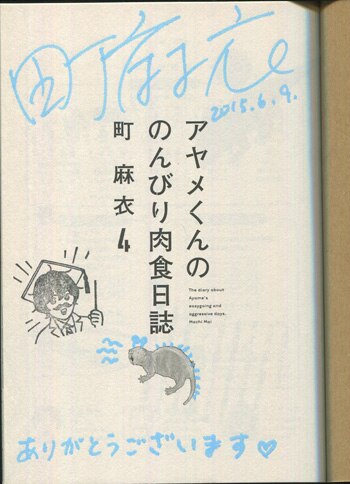 町麻衣
2015.6.9.
アヤメくんの
のんびり肉食日誌
町 麻衣 4
The diary about
Ayame's
easygoing and
aggressive days.
Machi Mai
ありがとうございます♡